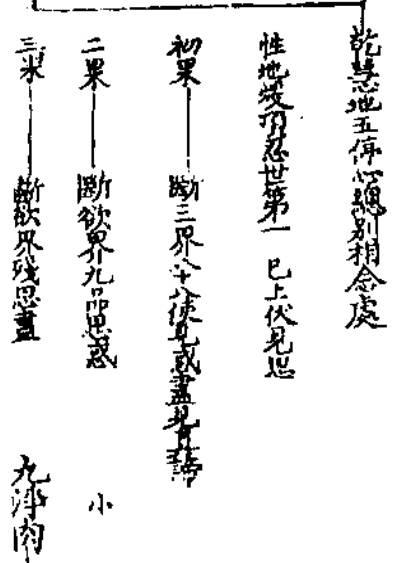 乾慧地五停心總別相念處
性地煖頂忍世第一 已上伏見思
初果 斷三界八十八使見惑盡見真諦
二果 斷欲界九品思惑 小
三果 斷欲界殘思盡 九淨肉